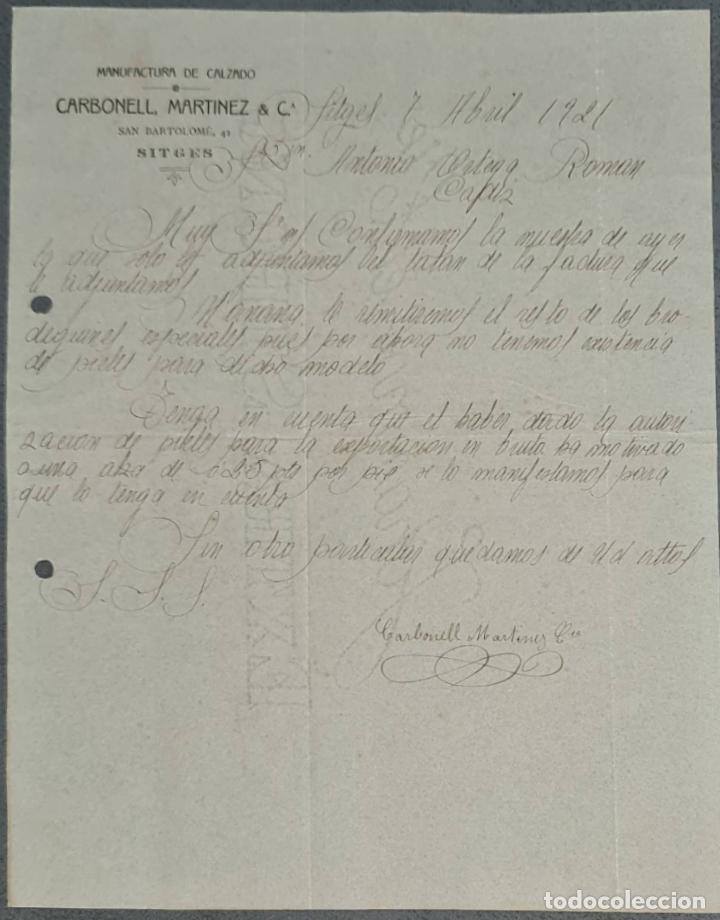 MANUFACTURA DE CALZADO
CARBONELL, MARTINEZ & C.ª
SAN BARTOLOMÉ, 41
SITGES
Sitges 7 Abril 1921
Antonio Ortega Roman
Cadiz
Muy Sr ntro Confirmamos la nuestra de ayer
la que solo adjuntamos del talon de la factura que
le adjuntamos
Mañana le remitiremos el resto de los bro-
deguines especiales pues por ahora no tenemos existencia
de pieles para dicho modelo
Tenga en cuenta que el haber dado la autori-
zacion de pieles para la exportacion en bruto ha motivado
una alza de 0'25 pts por pie se lo manifestamos para
que lo tenga en cuenta
Sin otro particular quedamos de Ud attos
S. S. S.
Carbonell Martinez Cia
todocoleccion